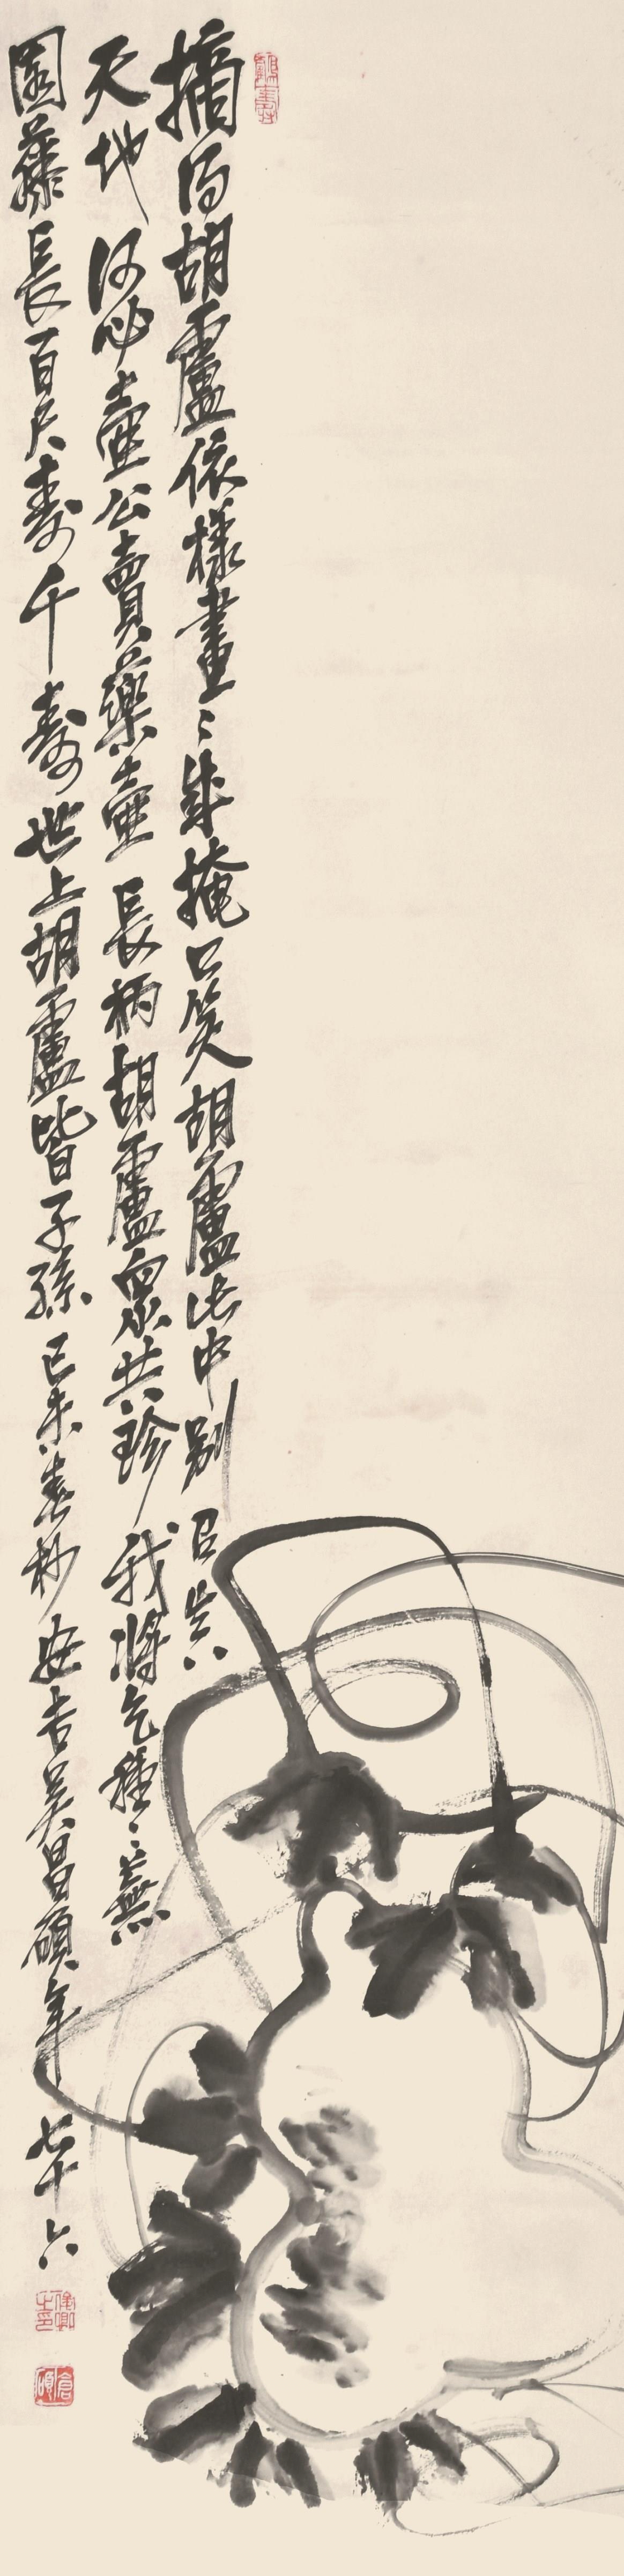 摘得胡盧依樣畫=成掩口笑胡盧此中別有
天地何必壺公賣藥壺長柄胡盧眾共珍我將乞種=蕪
園藤長百尺壽千壽世上胡盧皆子孫己未春杪安吉吳昌碩年七十六
俊卿之印
倉碩